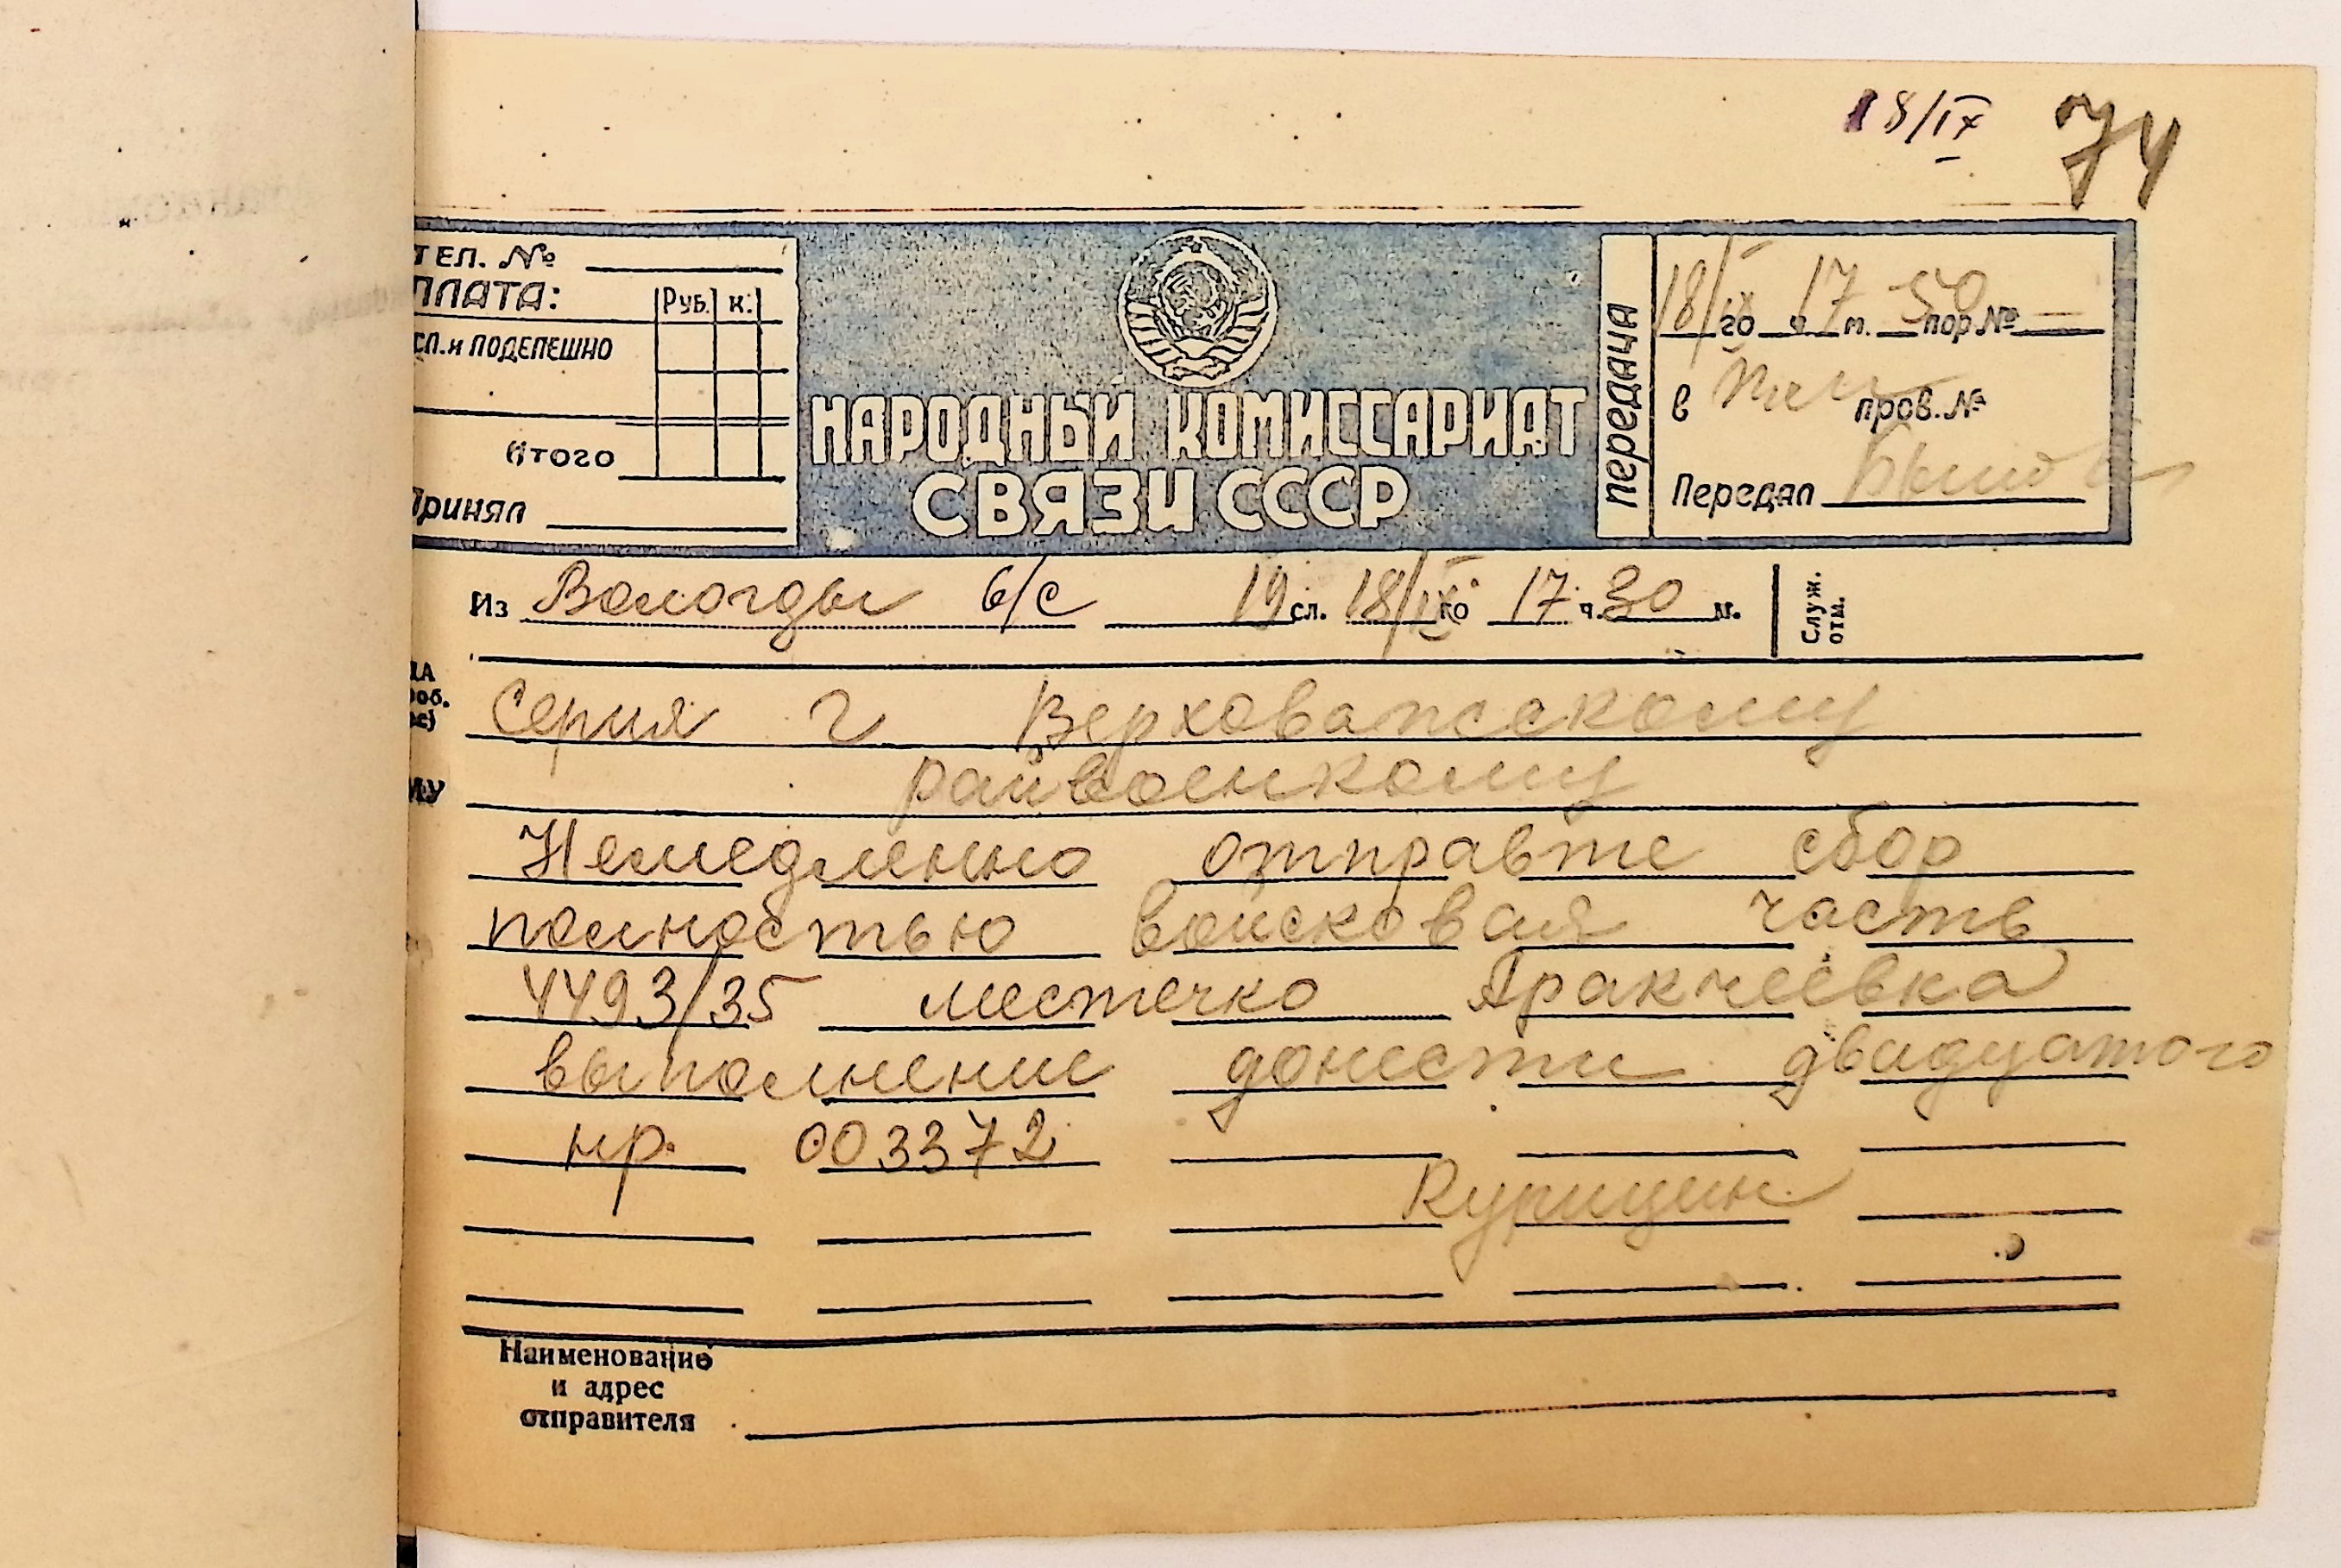 18/IX 74
ТЕЛ. №
ПЛАТА:
Руб. к.
СЛ. и ПОДЕПЕШНО
Итого
Принял
НАРОДНЫЙ КОМИССАРИАТ
СВЯЗИ СССР
ПЕРЕДАЧА
18/IX го ч. 17 м. 50 пор. №
в пров. №
Передал
Из Вологды б/с 19 сл. 18/IX го 17 ч. 30 м. Служ. отм.
Серия Г Верховажскому
райвоенкому
Немедленно отправте сбор
полностью войсковая часть
4493/35 местечко Аракчеевка
выполнение донести двадцатого
нр. 003372
Курицин
Наименование
и адрес
отправителя